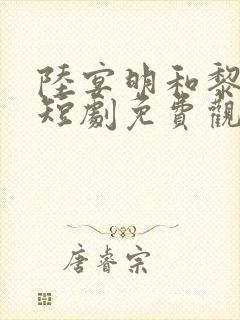 陸宴明和黎
短劇免費觀
唐睿宗